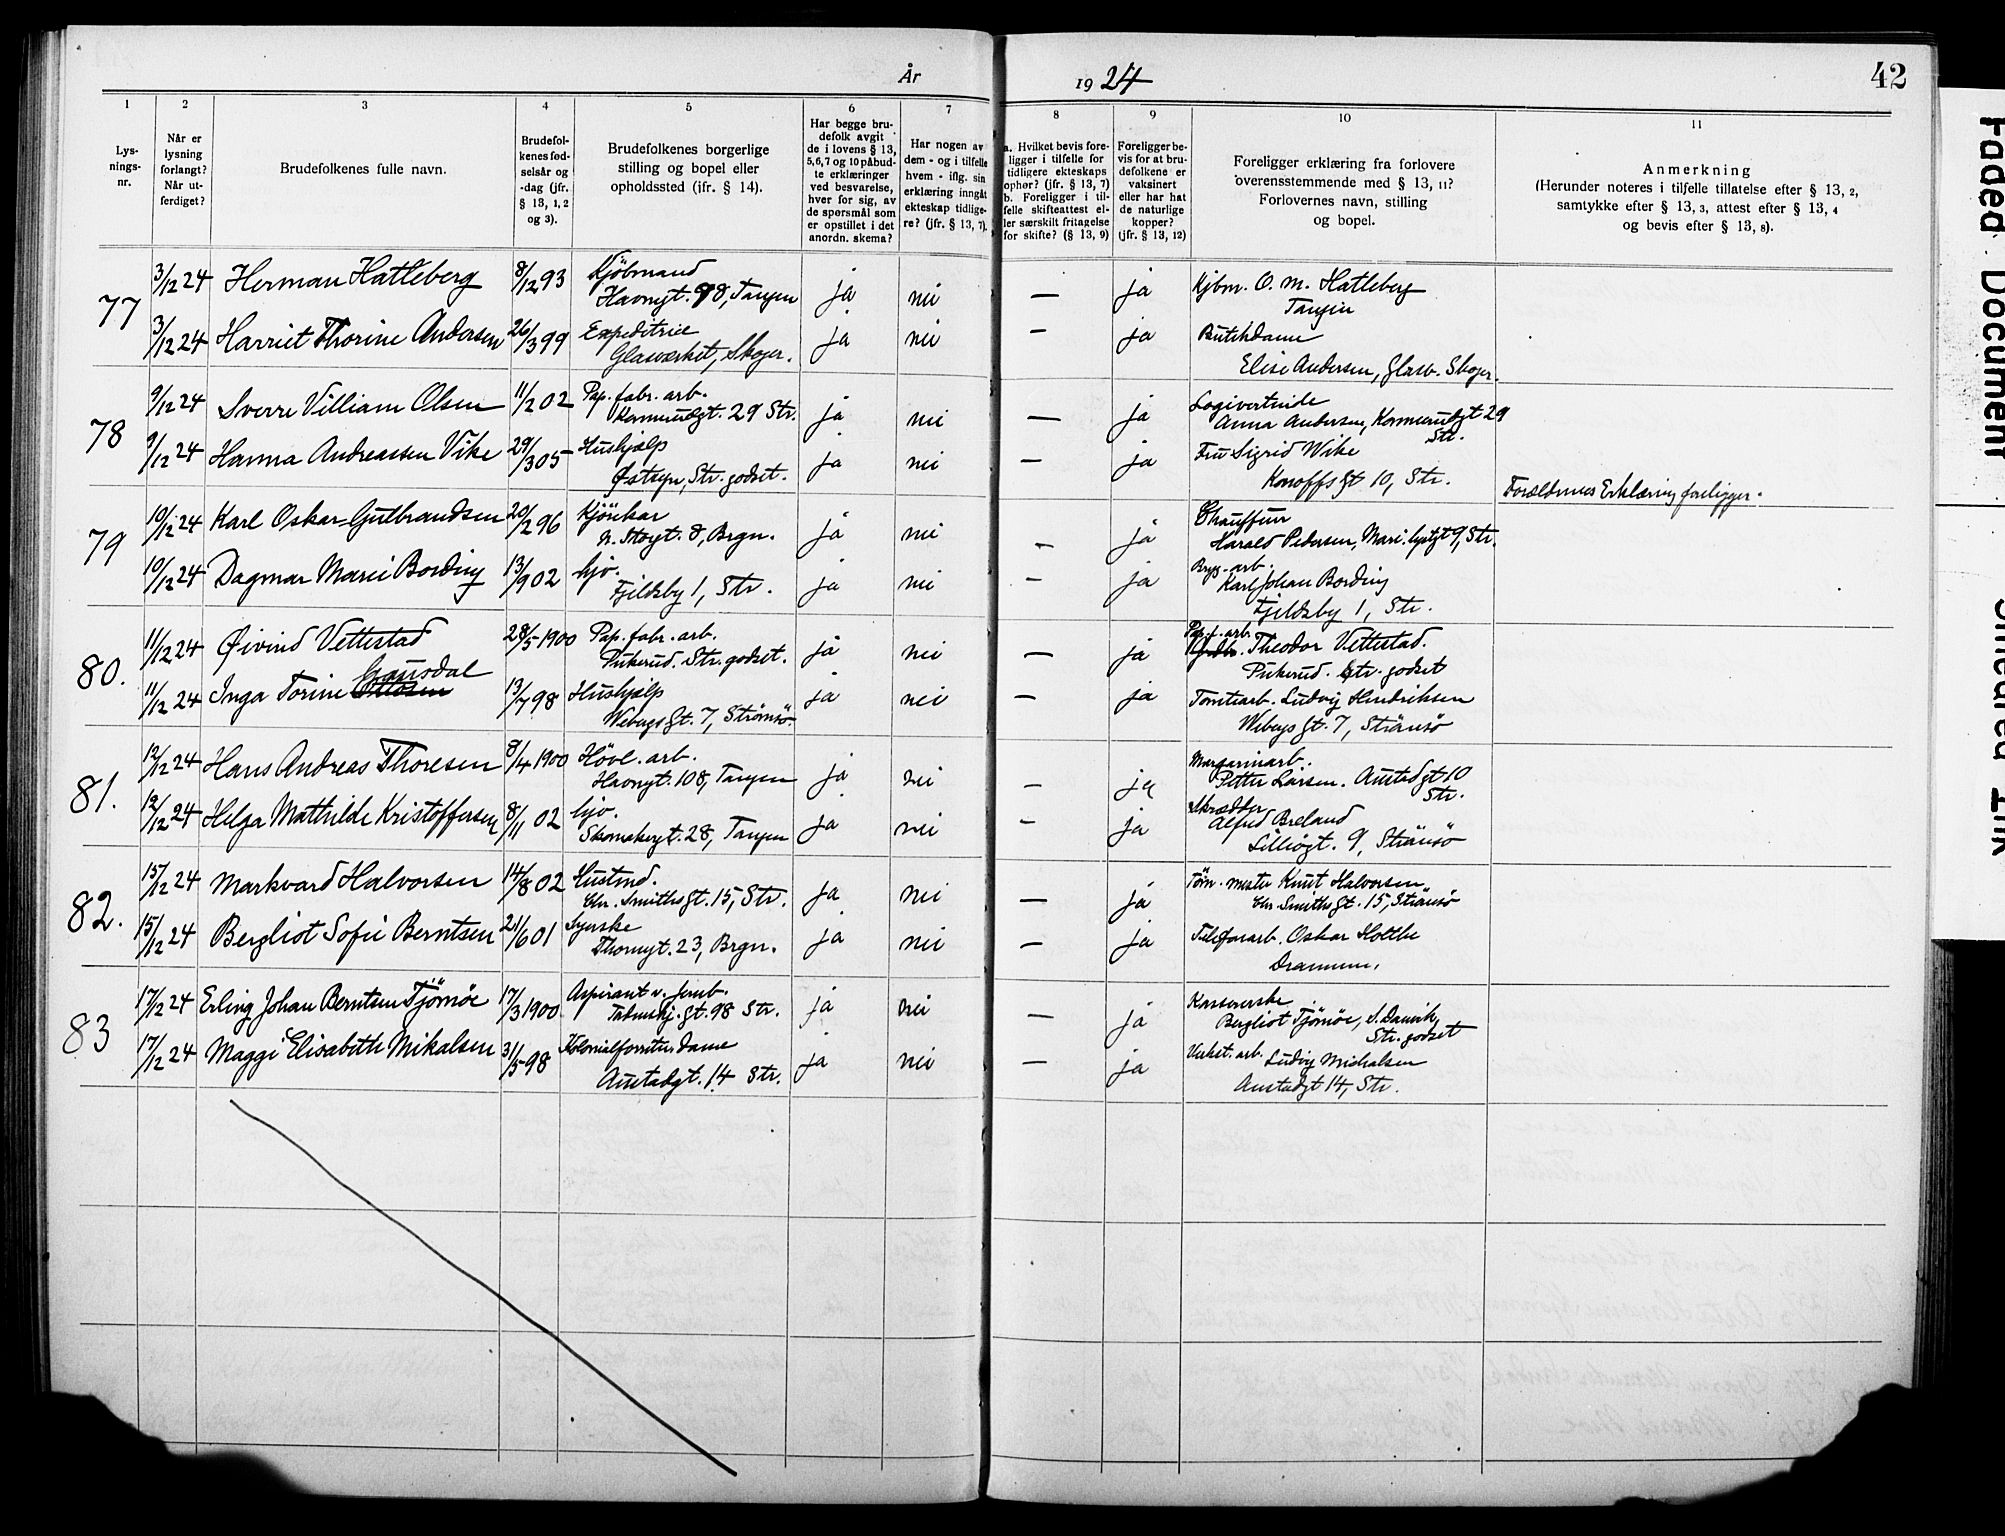 År 1924
42
1 2 3 4 5 6 7 8 9 10 11
Lys-
nings-
nr.
Når er
lysning
forlangt?
Når ut-
ferdiget?
Brudefolkenes fulle navn.
Brudefol-
kenes fød-
selsår og
-dag (jfr.
§ 13, 1, 2
og 3).
Brudefolkenes borgerlige
stilling og bopel eller
opholdssted (jfr. § 14).
Har begge bru-
defolk avgit
de i lovens § 13,
5,6,7 og 10 påbud-
te erklæringer
ved besvarelse,
hver for sig, av
de spørsmål som
er opstillet i det
anordn. skema?
Har nogen av
dem - og i tilfelle
hvem - iflg. sin
erklæring inngåt
ekteskap tidlige-
re? (jfr. § 13, 7).
a. Hvilket bevis fore-
ligger i tilfelle for
tidligere ekteskaps
ophør? (jfr. § 13, 7)
b. Foreligger i til-
felle skifteattest el-
ler særskilt fritagelse
for skifte? (§ 13, 9)
Foreligger be-
vis for at bru-
defolkene er
vaksinert
eller har hat
de naturlige
kopper?
(jfr. § 13, 12)
Foreligger erklæring fra forlovere
overensstemmende med § 13, 11?
Forlovernes navn, stilling
og bopel.
Anmerkning
(Herunder noteres i tilfelle tillatelse efter § 13, 2,
samtykke efter § 13, 3, attest efter § 13, 4
og bevis efter § 13, 8).
77
3/12 24 Herman Hatleberg 8/12 93 Kjöbmand
Havnegt. 98, Tangen ja nei — ja Kjbm. O. M. Hatleberg
Tangen
3/12 24 Harriet Thorine Andersen 26/3 99 Expeditrice
Glasværket, Skoger. ja nei — ja Butikdame
Elise Andersen, Glasv. Skoger.
78
9/12 24 Sverre Villiam Olsen 11/2 02 Pap. fabr. arb.
29 Str. ja nei — ja Logivertinde
Anna Andersen, 29
Str.
9/12 24 Hanna Andreassen Vike 29/3 05 Hushjælp
Str. godset. ja nei — ja Fru Sigrid Wike
Konoffs Gt 10, Str.
Forældrenes Erklæring foreligger.
79
10/12 24 Karl Oskar Gulbrandsen 20/2 96 Kjörekar
8, Brgn. ja nei — ja Chauffeur
Harald Pedersen, 9, Str.
10/12 24 Dagmar Marie Bording 13/9 02 hjv.
Fjeldsby 1, Str. ja nei — ja Bryg. arb.
Karl Johan Bording
Fjeldsby 1, Str.
80.
11/12 24 Øivind Vettestad 28/5 1900 Pap. fabr. arb.
Pukerud. Str. godset. ja nei — ja Pap. f. arb.
Theodor Vettestad.
Pukerud. Str. godset
Gausdal
11/12 24 Inga Torine 13/7 98 Hushjælp
Webergs Gt. 7, Strömsö. ja nei — ja Tomtearb. Ludvig Hendriksen
Webergs Gt. 7, Strömsö
81.
12/12 24 Hans Andreas Thoresen 8/4 1900 Hövl. arb.
Havnegt. 108, Tangen ja nei — ja Margarinarb.
Petter Larsen. Austadgt 10
Str.
12/12 24 Helga Mathilde Kristoffersen 8/11 02 hjv.
28, Tangen ja nei — ja Skrædder
Alfred Breland
9, Strömsö
82.
15/12 24 Markvard Halvorsen 14/8 02
Chr. Smiths Gt. 15, Str. ja nei — ja mester Knut Halvorsen.
Chr. Smiths Gt. 15, Strömsö
15/12 24 Bergliot Sofie Berntsen 21/6 01 Syerske
23, Brgn. ja nei — ja Telefonarb. Oskar Holtbe
Drammen.
83
17/12 24 Erling Johan Berntsen Tjömöe 17/3 1900 Aspirant v. Jernb.
Gt. 98 Str. ja nei — ja Kassererske
Bergliot Tjömöe,
Str. godset
17/12 24 Maggi Elisabeth Mikalsen 31/5 98 Dame
Austadgt. 14 Str. ja nei — ja Verkst. arb. Ludvig Michalsen
Austadgt 14, Str.
Faded Document
Smeared Ink